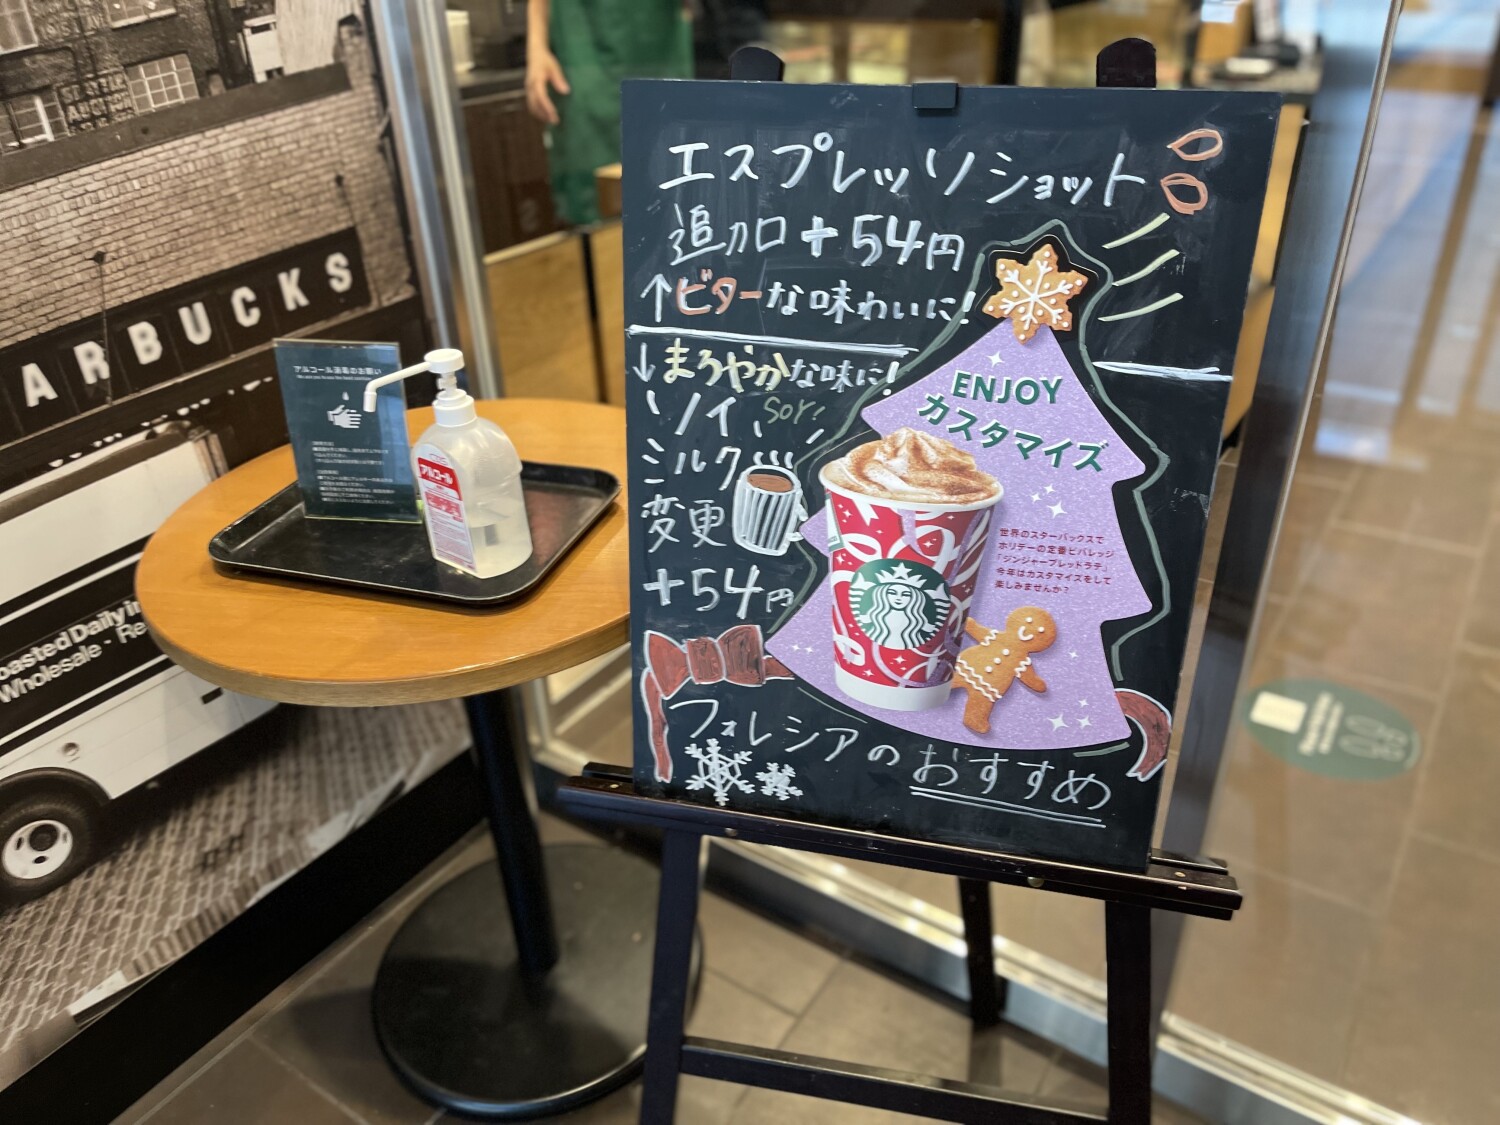 エスプレッソショット
追加 +54円
↑ビターな味わいに!
↓まろやかな味に!
ソイ soy!
ミルク
変更
+54円
フォレシアのおすすめ
ENJOY
カスタマイズ
世界のスターバックスで
ホリデーの定番ビバレッジ
「ジンジャーブレッドラテ」
今年はカスタマイズをして
楽しみませんか?
アルコール消毒のお願い
アルコール
ARBUCKS
oasted Daily in
Wholesale · Re